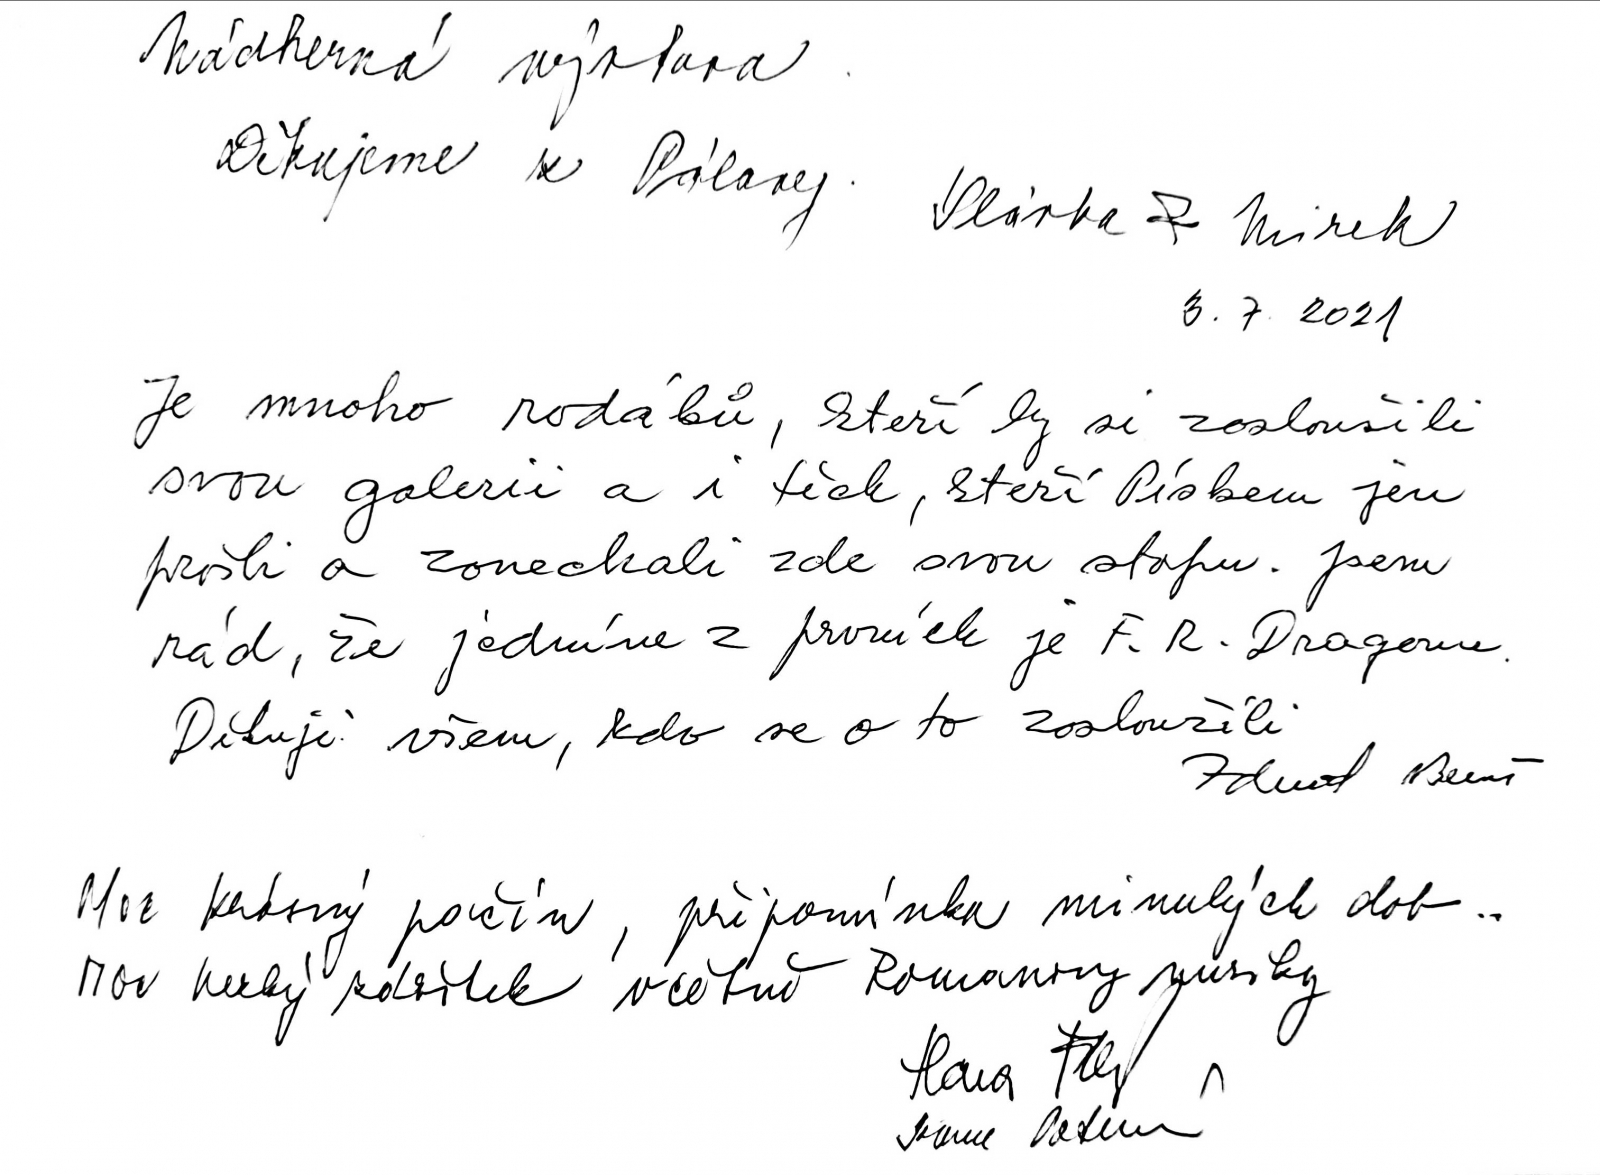 Nádherná výstava.
Děkujeme z Pálavy.
Vlárka & Mirek
3. 7. 2021
Je mnoho rodáků, kteří by si zasloužili
svou galerii a i těch, kteří Pískem jen
prošli a zanechali zde svou stopu. Jsem
rád, že jedním z prvních je F. R. Dragoun.
Děkuji všem, kdo se o to zasloužili
Moc krásný počin, připomínka minulých dob..
Moc hezký zážitek včetně Romanovy musiky
Hana